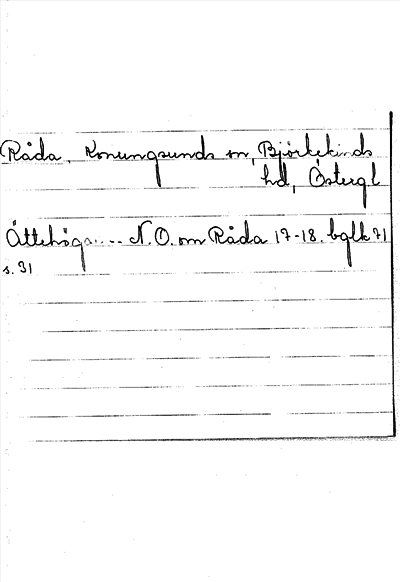 Råda, Konungsunds sn, Björkekinds
hd, Östergl
Ättehög..... N.O. om Råda 17-18. bglk 71
s. 31